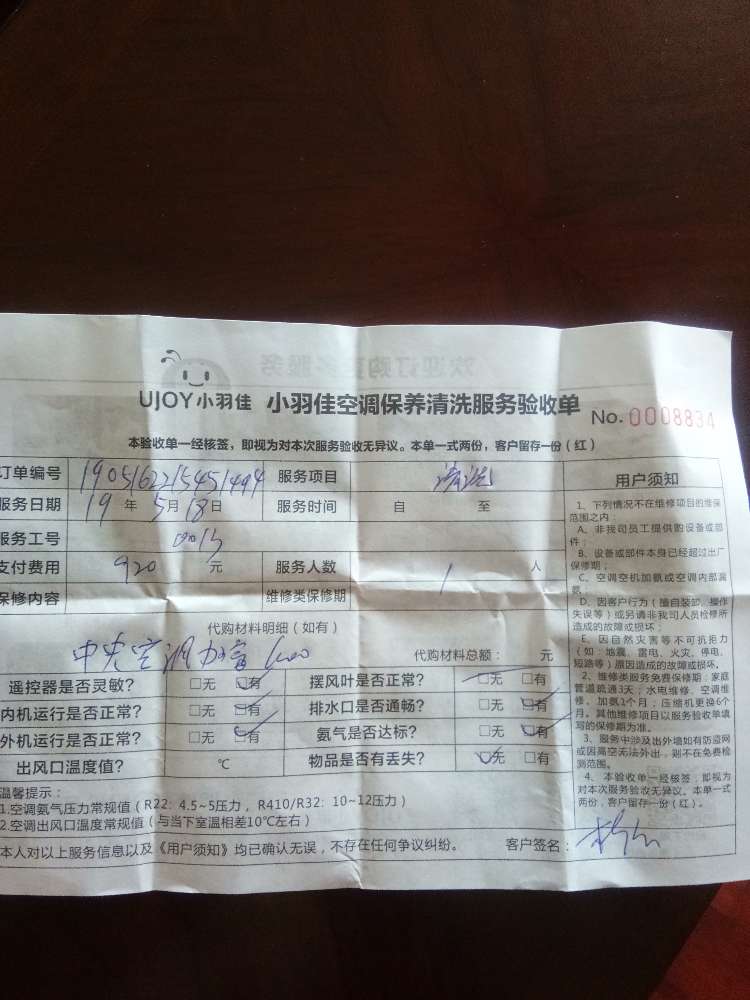 UJOY小羽佳 小羽佳空调保养清洗服务验收单 No.0008834
本验收单一经核签，即视为对本次服务验收无异议。本单一式两份，客户留存一份（红）
订单编号 1905162215451494 服务项目 清洗
服务日期 19 年 5 月 18 日 服务时间 自 至
服务工号
支付费用 920 元 服务人数 1 人
保修内容 维修类保修期
代购材料明细（如有）
中央空调 代购材料总额： 元
遥控器是否灵敏？ □无 □有 摆风叶是否正常？ □无 □有
内机运行是否正常？ □无 □有 排水口是否通畅？ □无 □有
外机运行是否正常？ □无 □有 氨气是否达标？ □无 □有
出风口温度值？ ℃ 物品是否有丢失？ □无 □有
温馨提示：
1.空调氨气压力常规值（R22：4.5~5压力，R410/R32：10~12压力）
2.空调出风口温度常规值（与当下室温相差10℃左右）
本人对以上服务信息以及《用户须知》均已确认无误，不存在任何争议纠纷。 客户签名：
用户须知
1、下列情况不在维修项目的维保
范围之内：
A、非我司员工提供的设备或部
件；
B、设备或部件本身已经超过出厂
保修期；
C、空调空机加氨或空调内部漏
氨；
D、因客户行为（擅自装卸、操作
失误等）或另请非我司人员检修所
造成的故障或损坏；
E、因自然灾害等不可抗拒力
（如：地震、雷电、火灾、停电、
短路等）原因造成的故障或损坏。
2、维修类服务免费保修期：家庭
管道疏通3天；水电维修、空调维
修、加氨1个月；压缩机更换6个
月。其他维修项目以服务验收单填
写的保修期为准。
3、服务中涉及出外墙如有防盗网
或因高空无法外出，则不在免费检
测范围。
4、本验收单一经核签，即视为
对本次服务验收无异议。本单一式
两份，客户留存一份（红）。